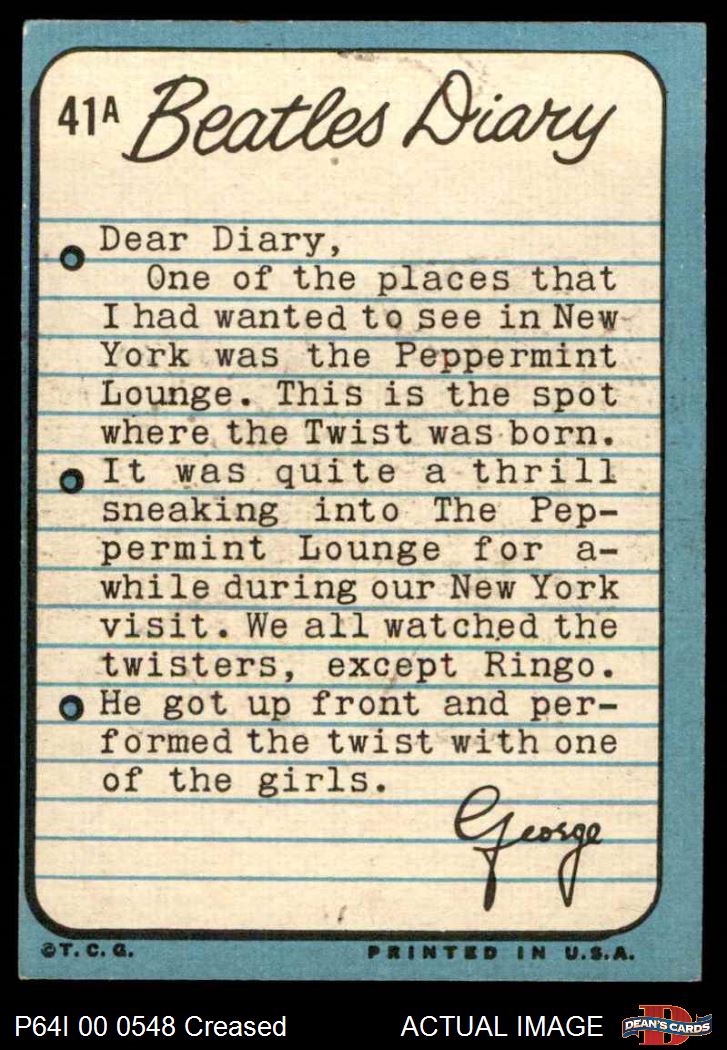 41A Beatles Diary
Dear Diary,
One of the places that
I had wanted to see in New
York was the Peppermint
Lounge. This is the spot
where the Twist was born.
It was quite a thrill
sneaking into The Pep-
permint Lounge for a-
while during our New York
visit. We all watched the
twisters, except Ringo.
He got up front and per-
formed the twist with one
of the girls.
George
©T.C.G. PRINTED IN U.S.A.
P64I 00 0548 Creased ACTUAL IMAGE DEAN'S CARDS